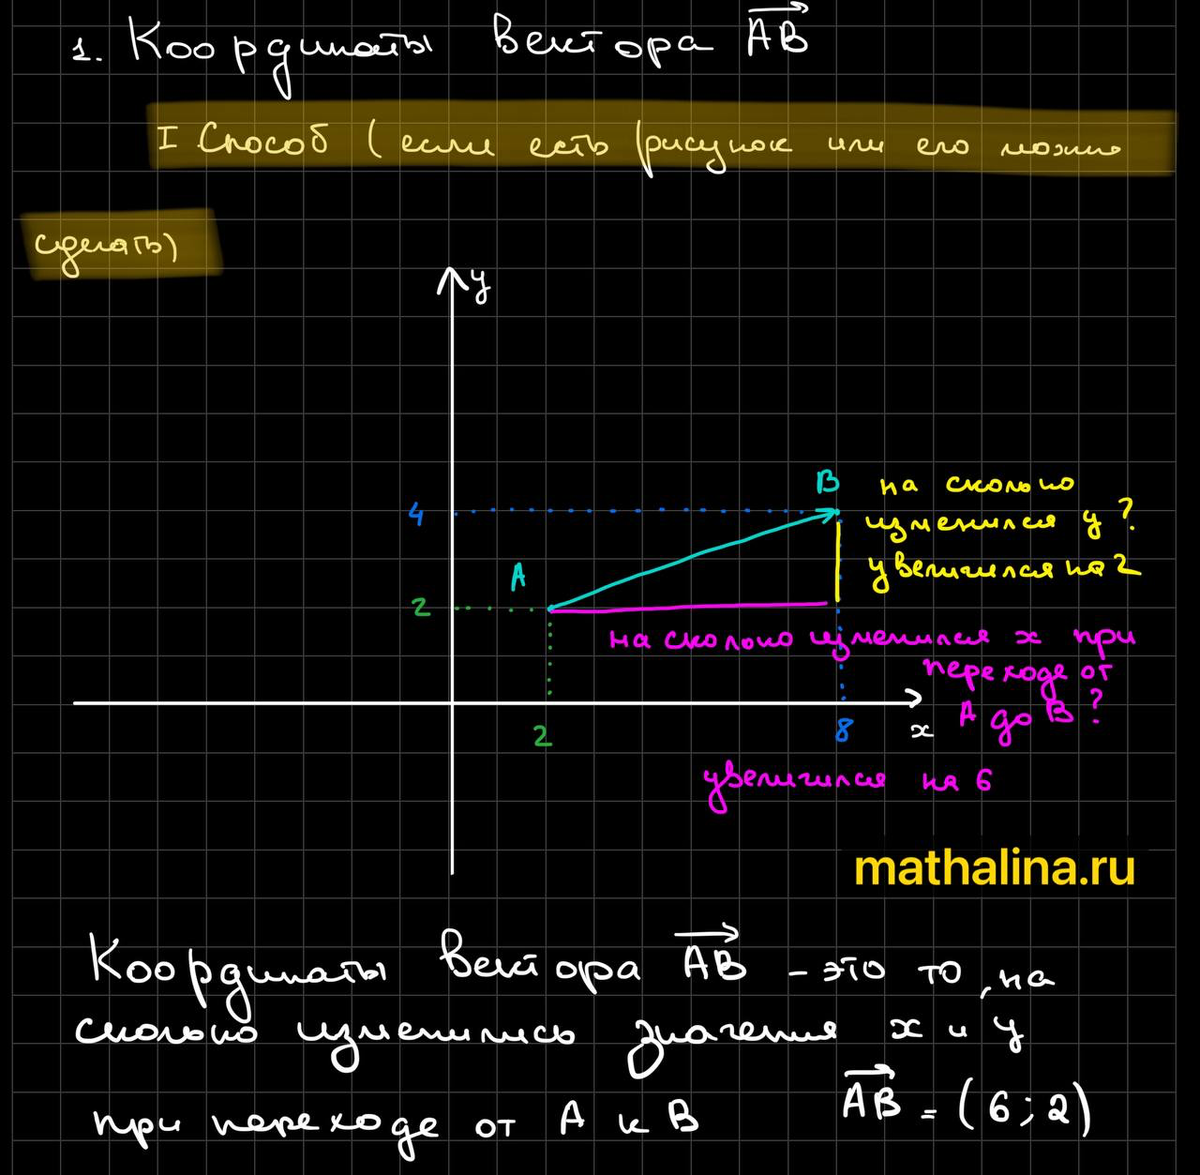 1. Координаты вектора AB
I Способ (если есть рисунок или его можно
сделать)
y
B
на сколько
изменился y?
увеличился на 2
4
A
2
на сколько изменился x при
переходе от
A до B?
2
8
x
увеличился на 6
mathalina.ru
Координаты вектора AB - это то, на
сколько изменились значения x и y
при переходе от A к B
AB = (6; 2)